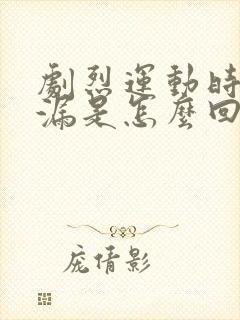 劇烈運動時
漏是怎麼回
庞倩影